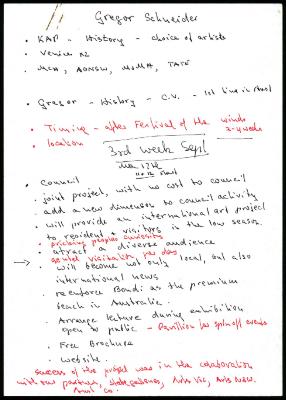 Gregor Schneider
• KAP - History - choice of artists
• Venice x2
• MCA, AGNSW, MoMA, TATE
• Gregor - History - C.V. - 1st time in Aust
• Timing - after Festival of the winds
2-4 weeks
• location
3rd week Sept
• Council
• joint project, with no cost to council
• add a new dimension to council activity
• will provide an international art project
to resident & visitors in the low season.
• attract a diverse audience
• will become not only local, but also
international news
• reenforce Bondi as the premium
beach in Australia.
• Arrange lecture during exhibition
open to public - Pavillion for spin off events
• Free Brochure
• website.
success of the project was in the collaboration
with our partners, Arts Vic, Arts NSW.